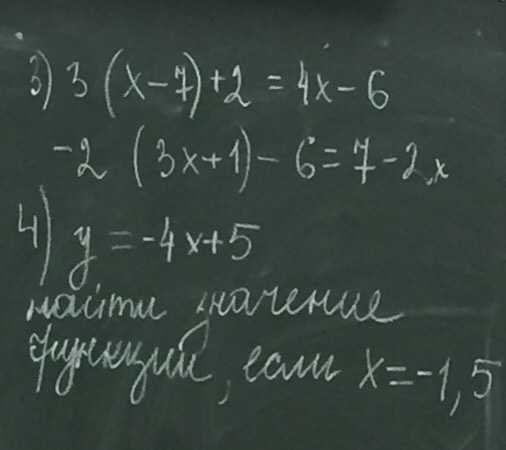 3) 3 (x-7)+2 = 4x-6
-2 (3x+1)-6=7-2x
4) y = -4x+5
найти значение
функций, если x=-1,5